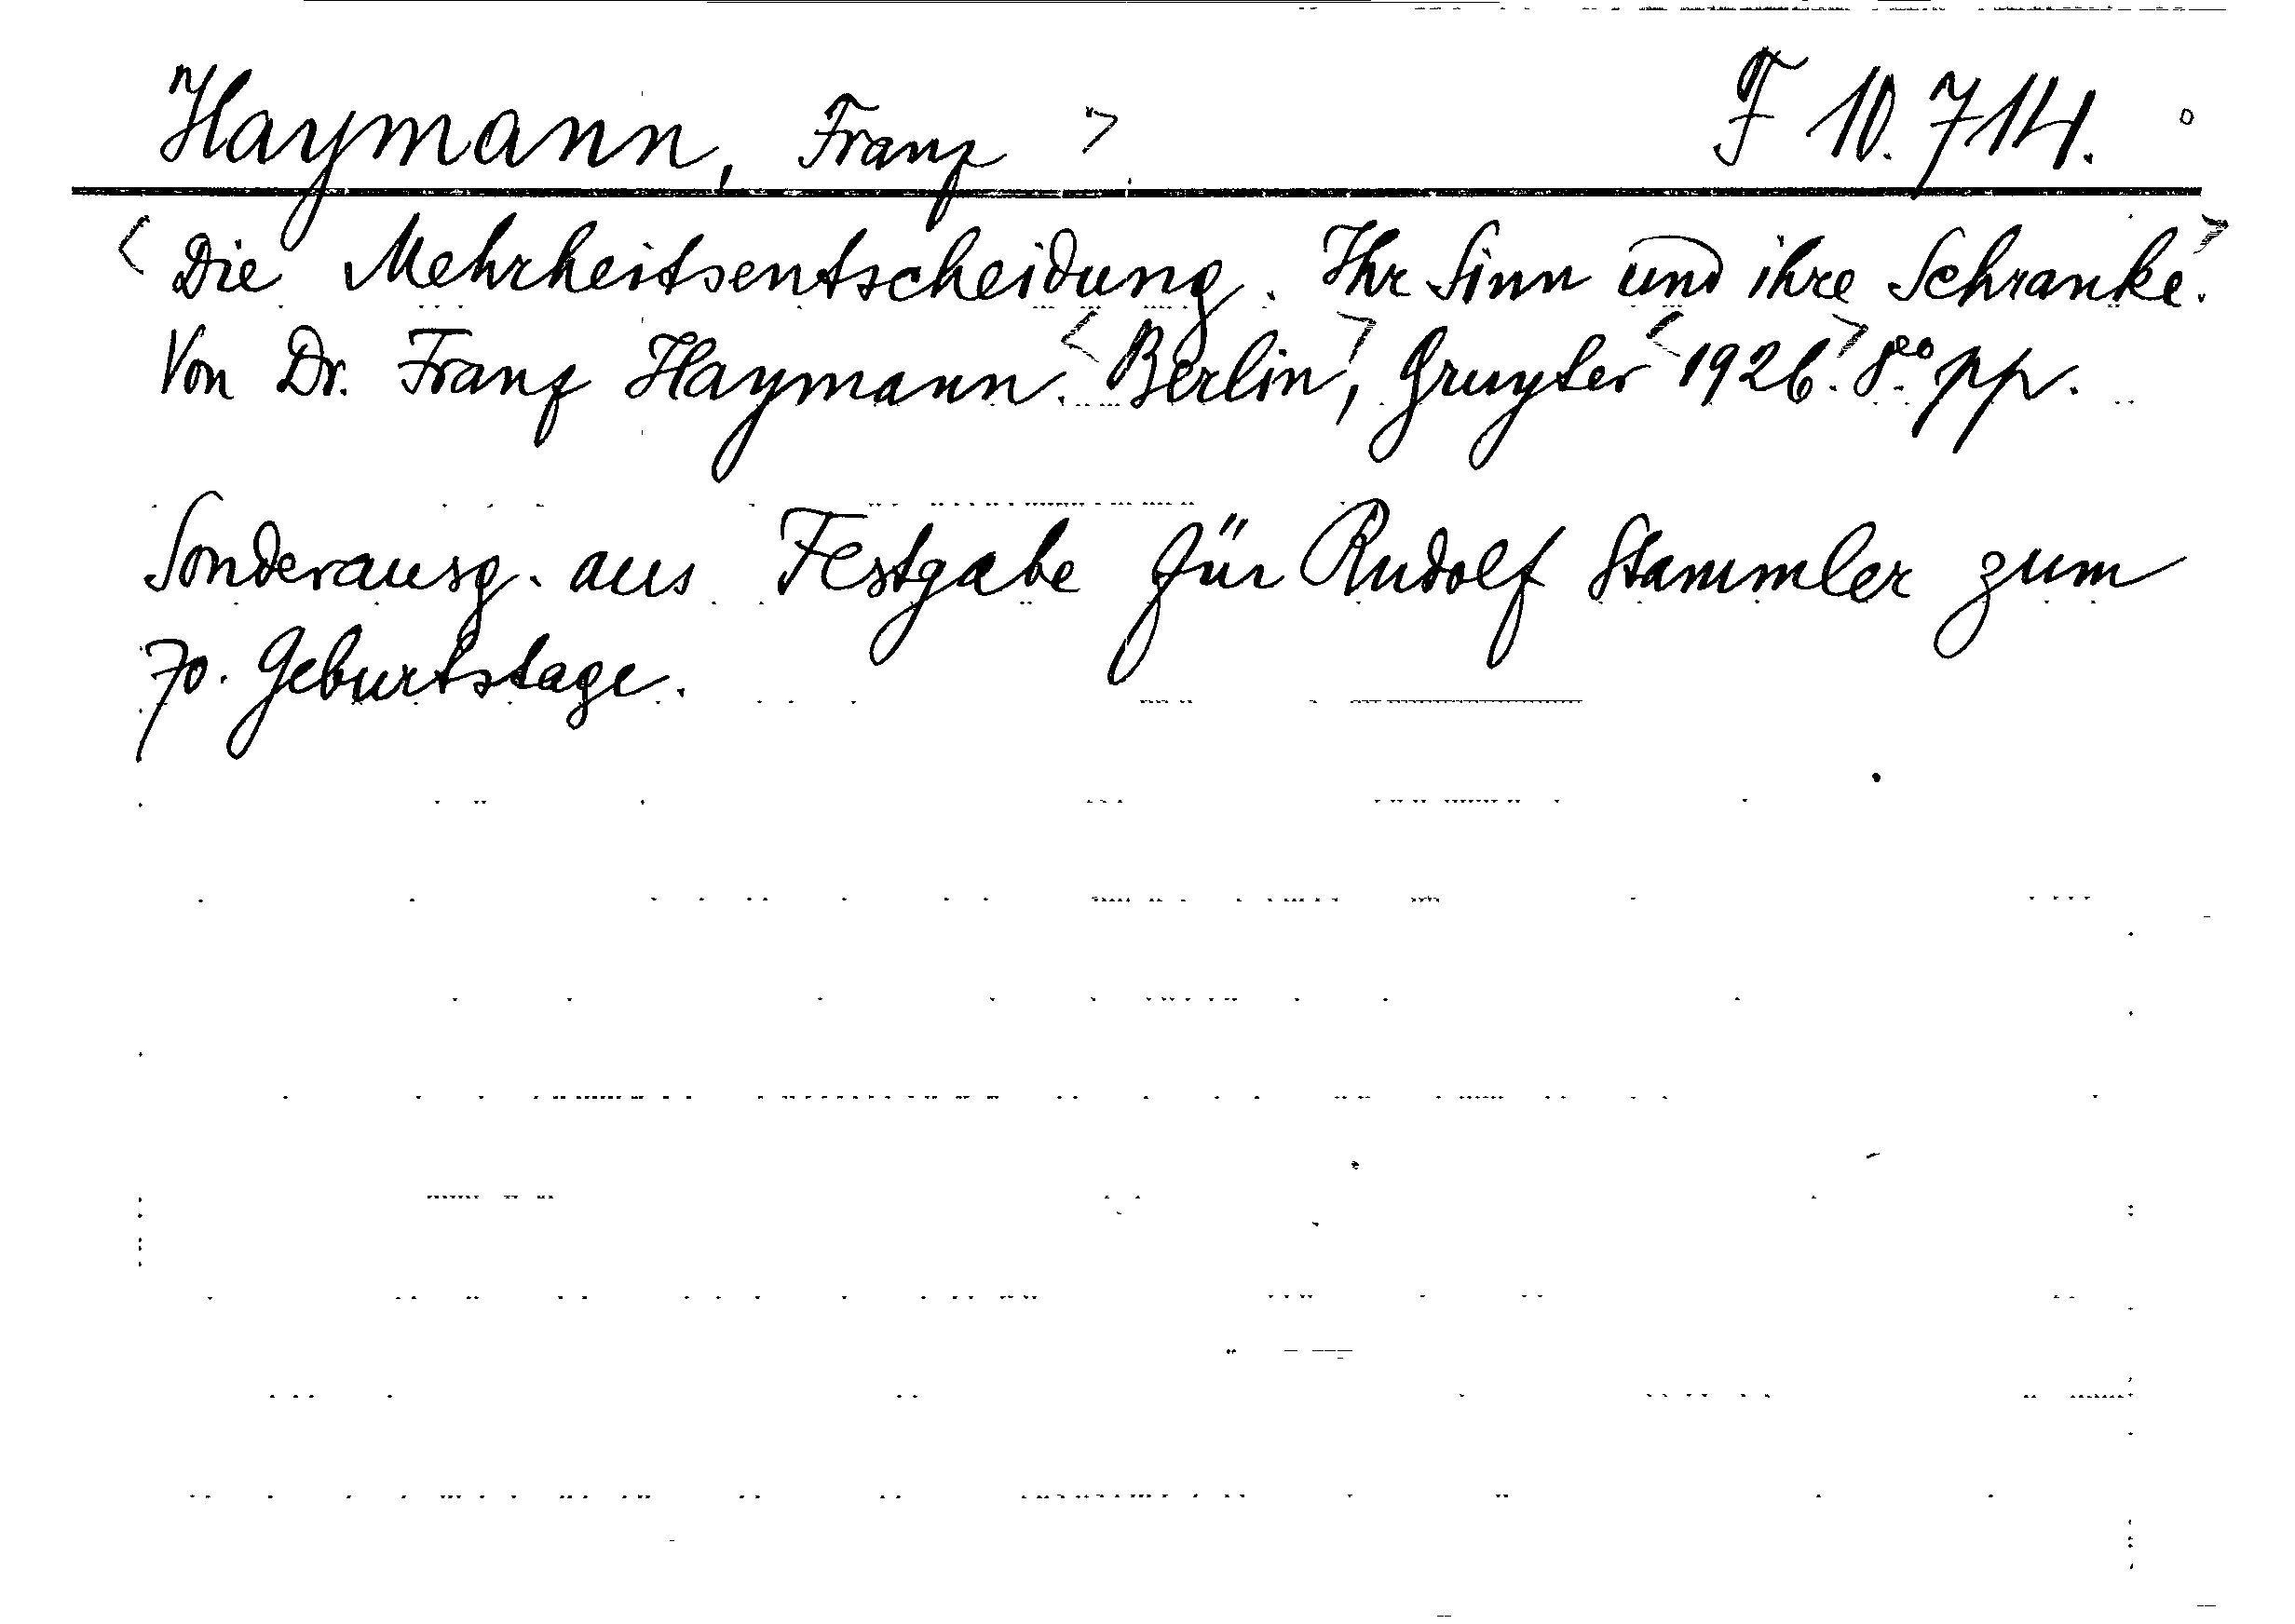 Haymann, Franz > F 10.714.
<Die Mehrheitsentscheidung. Ihr Sinn und ihre Schranke.>
Von Dr. Franz Haymann. <Berlin>, Gruyter <1926.> 8° pp.
Sonderausg. aus Festgabe für Rudolf Stammler zum
70. Geburtstage.